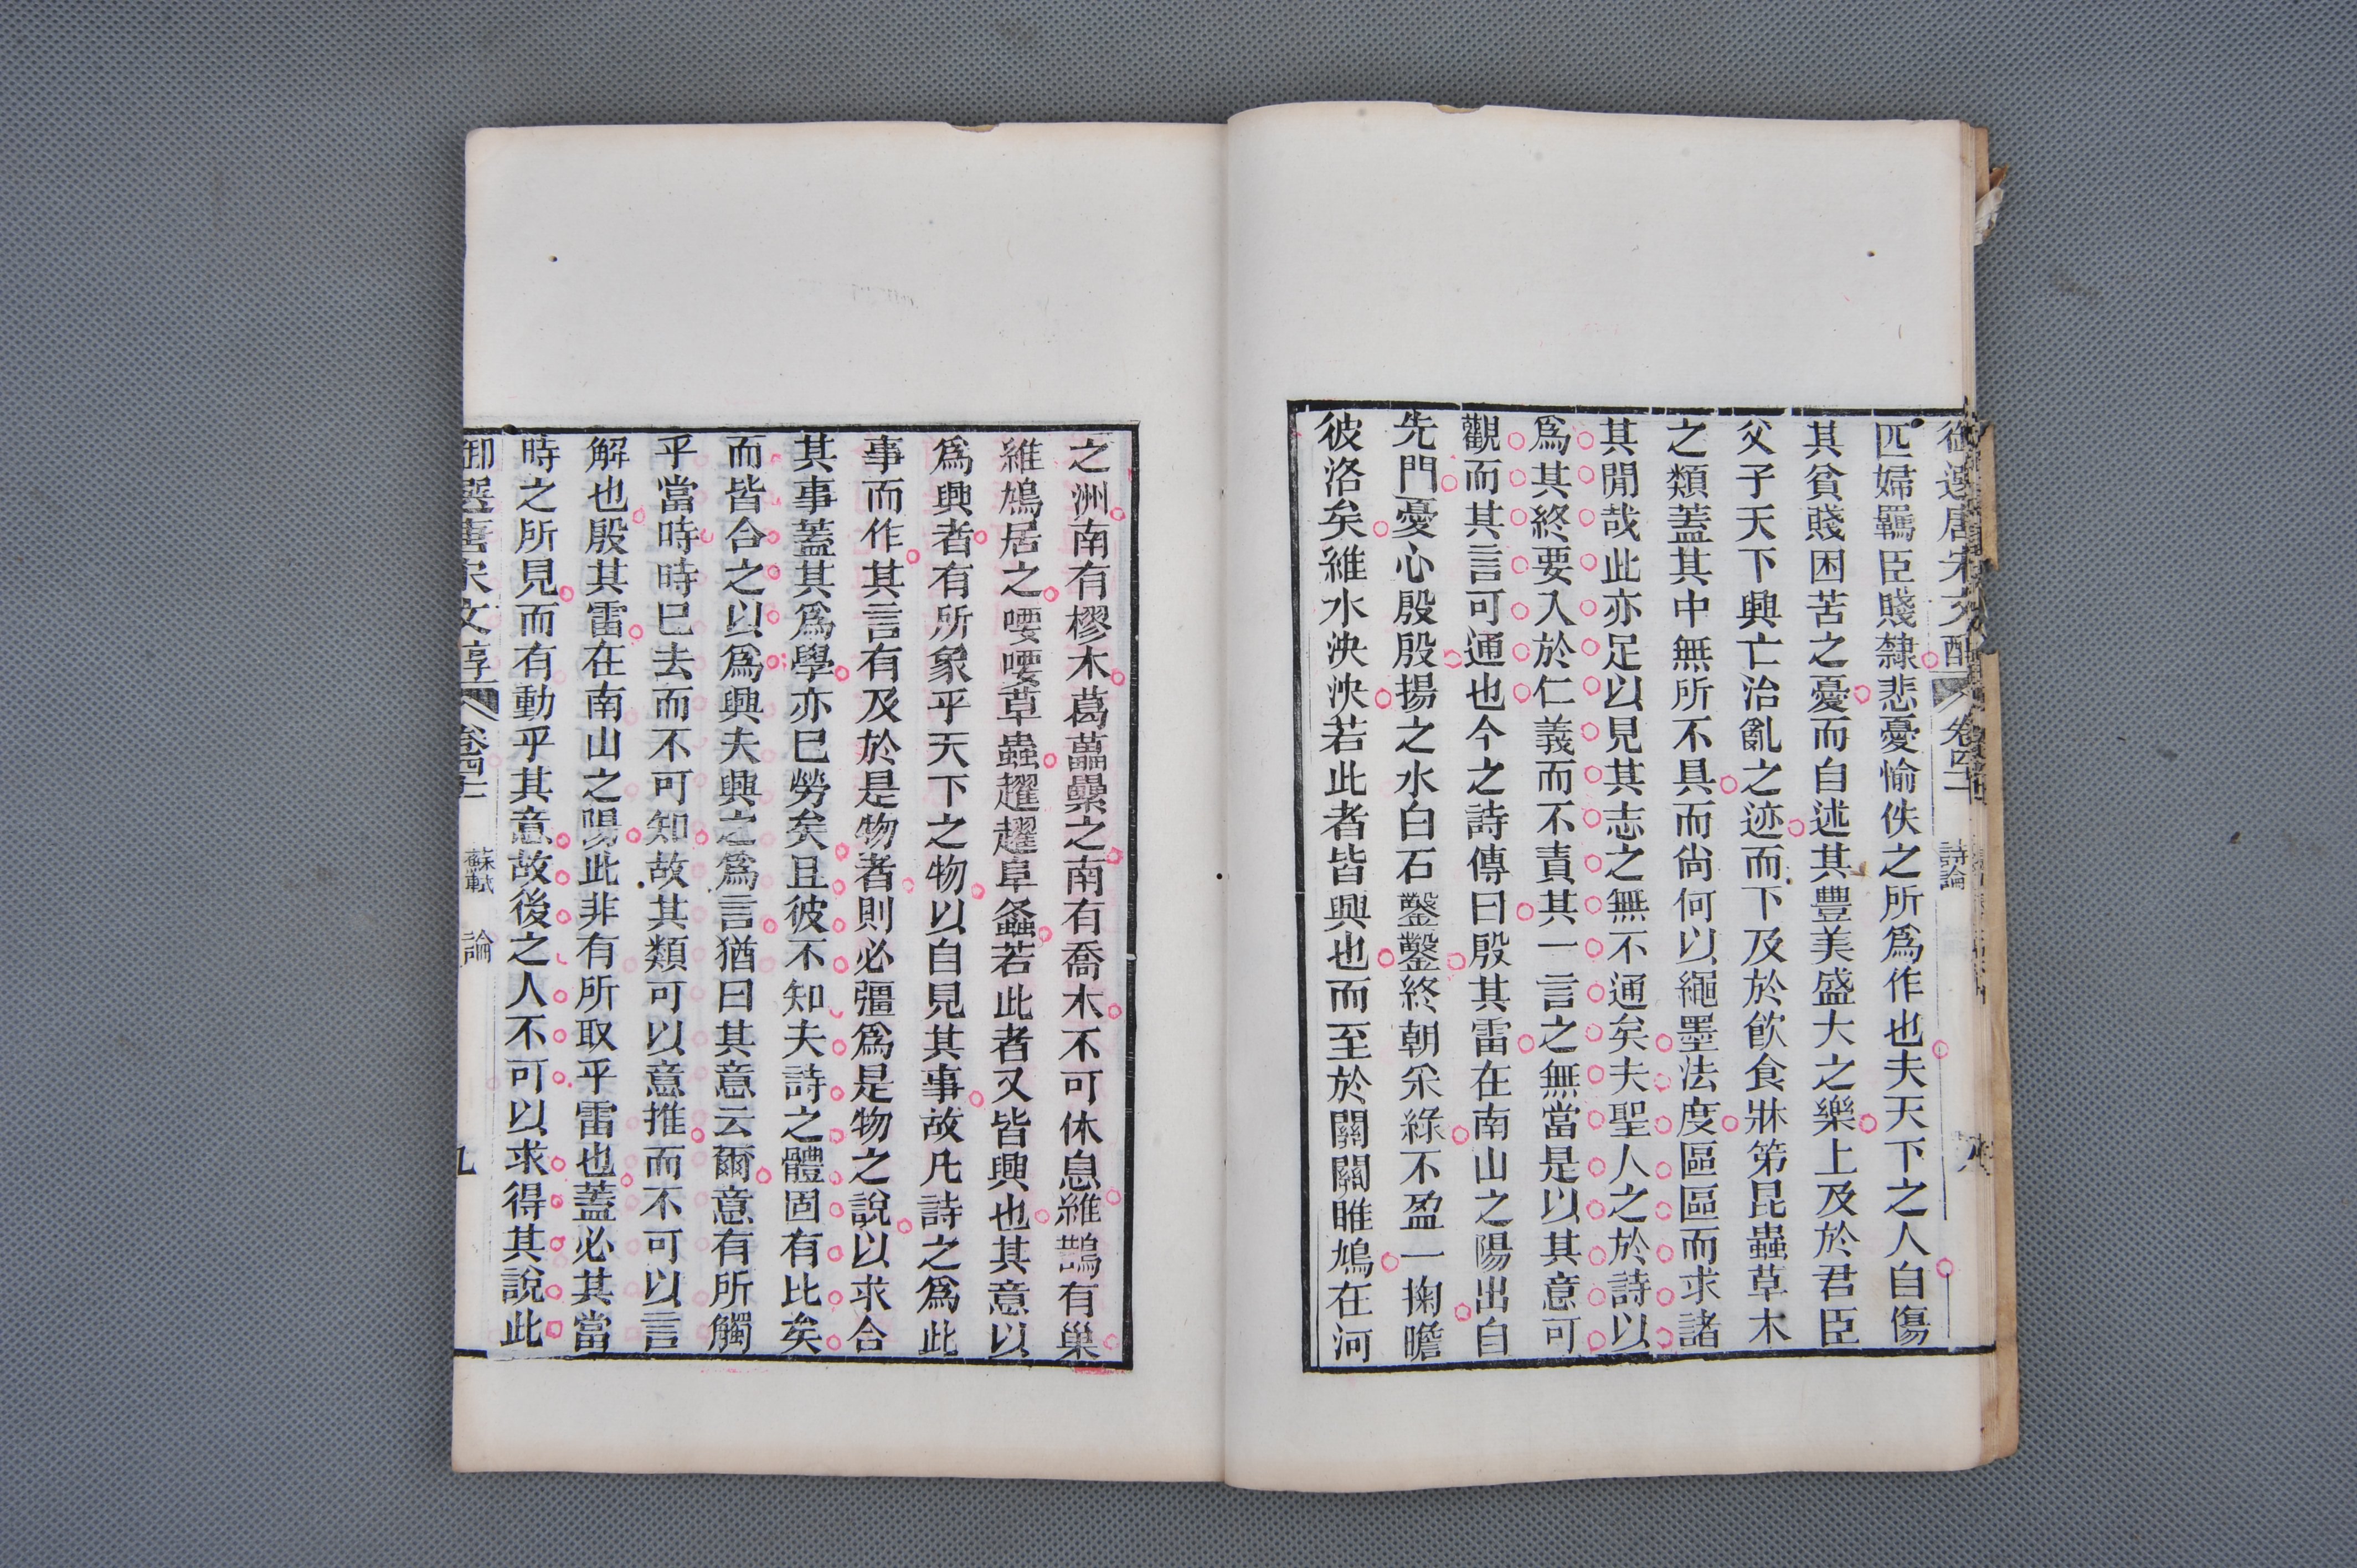 御選唐宋文醇 卷四十一 詩論
匹婦羈臣賤隸悲憂愉佚之所爲作也夫天下之人自傷
其貧賤困苦之憂而自述其豐美盛大之樂上及於君臣
父子天下興亡治亂之迹而下及於飮食牀笫昆蟲草木
之類蓋其中無所不具而尙何以繩墨法度區區而求諸
其閒哉此亦足以見其志之無不通矣夫聖人之於詩以
爲其終要入於仁義而不責其一言之無當是以其意可
觀而其言可通也今之詩傳曰殷其雷在南山之陽出自
先門憂心殷殷揚之水白石鑿鑿終朝采綠不盈一掬瞻
彼洛矣維水泱泱若此者皆興也而至於關關雎鳩在河
之洲南有樛木葛藟纍之南有喬木不可休息維鵲有巢
維鳩居之喓喓草蟲趯趯阜螽若此者又皆興也其意以
爲興者有所象乎天下之物以自見其事故凡詩之爲此
事而作其言有及於是物者則必彊爲是物之說以求合
其事蓋其爲學亦已勞矣且彼不知夫詩之體固有比矣
而皆合之以爲興夫興之爲言猶曰其意云爾意有所觸
乎當時時已去而不可知故其類可以意推而不可以言
解也殷其雷在南山之陽此非有所取乎雷也蓋必其當
時之所見而有動乎其意故後之人不可以求得其說此
御選唐宋文醇 卷四十一 蘇軾 論 九